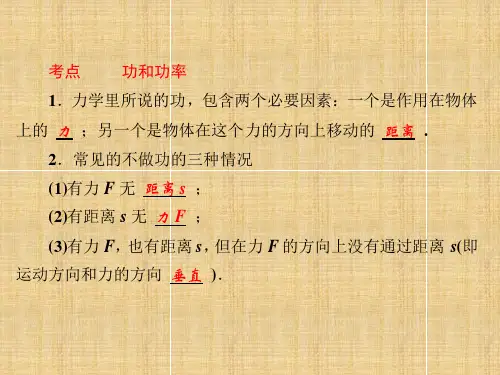 考点 功和功率
1．力学里所说的功，包含两个必要因素：一个是作用在物体
上的 力 ；另一个是物体在这个力的方向上移动的 距离 ．
2．常见的不做功的三种情况
(1)有力 F 无 距离 s ；
(2)有距离 s 无 力 F ；
(3)有力 F，也有距离 s，但在力 F 的方向上没有通过距离 s(即
运动方向和力的方向 垂直 )．